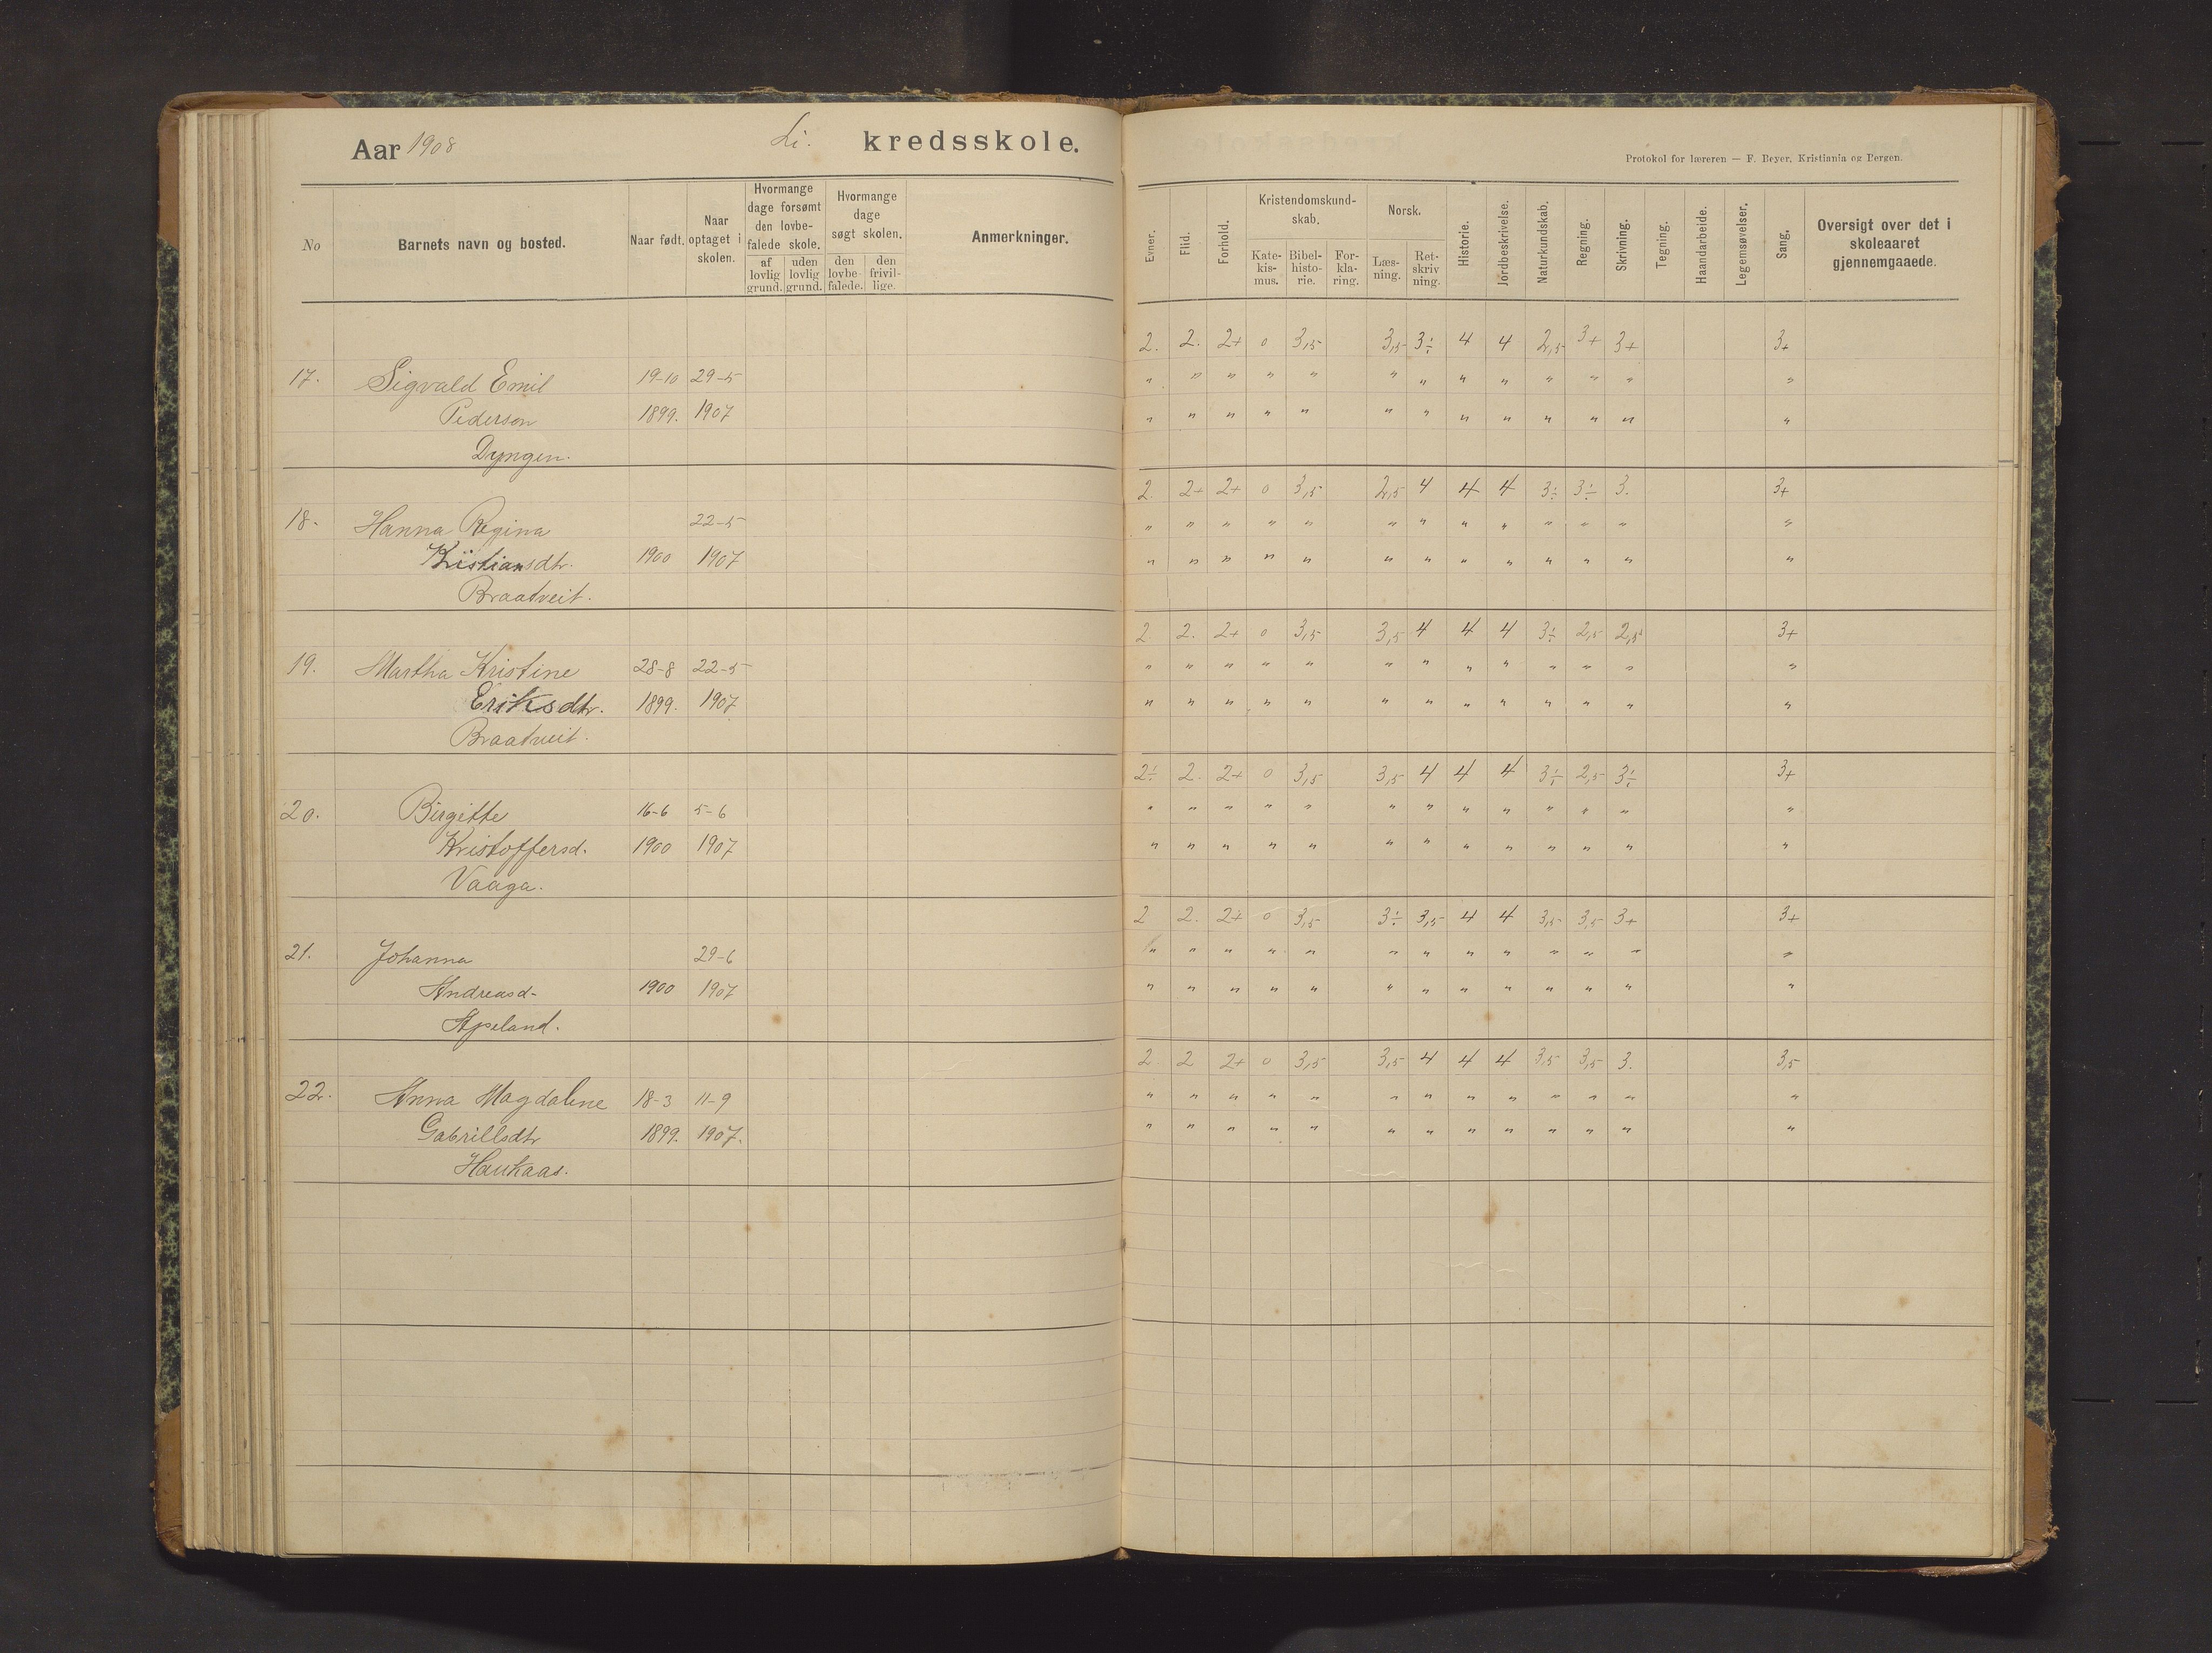 Aar 1908 Li. kredsskole.
Protokol for læreren — F. Beyer, Kristiania og Bergen.
No
Barnets navn og bosted.
Naar født.
Naar optaget i skolen.
Hvormange dage forsømt den lovbefalede skole.
af lovlig grund.
uden lovlig grund.
Hvormange dage søgt skolen.
den lovbefalede.
den frivillige.
Anmerkninger.
Evner.
Flid.
Forhold.
Kristendomskundskab.
Katekismus.
Bibelhistorie.
Forklaring.
Norsk.
Læsning.
Retskrivning.
Historie.
Jordbeskrivelse.
Naturkundskab.
Regning.
Skrivning.
Tegning.
Haandarbeide.
Legemsøvelser.
Sang.
Oversigt over det i skoleaaret gjennemgaaede.
2. 2. 2+ 0 3,5 3,5 3÷ 4 4 2,5 3+ 3+ 3+
17. Sigvald Emil 19-10 29-5 " " " " " " " " " " " " "
Pederson 1899. 1907 " " " " " " " " " " " " "
Dyngen.
2. 2+ 2+ 0 3,5 2,5 4 4 4 3÷ 3÷ 3. 3+
18. Hanna Regina 22-5 " " " " " " " " " " " " "
Kristiansdtr. 1900 1907 " " " " " " " " " " " " "
Braatveit.
2 2. 2+ 0 3,5 3,5 4 4 4 3÷ 2,5 2,5 3+
19. Martha Kristine 28-8 22-5 " " " " " " " " " " " " "
Eriksdtr. 1899. 1907 " " " " " " " " " " " " "
Braatveit.
2÷ 2. 2+ 0 3,5 3,5 4 4 4 3÷ 2,5 3÷ 3+
20. Birgitte 16-6 5-6 " " " " " " " " " " " " "
Kristoffersd. 1900 1907 " " " " " " " " " " " " "
Vaaga.
2 2. 2+ 0 3,5 3÷ 3,5 4 4 3,5 3,5 3+ 3+
21. Johanna 29-6 " " " " " " " " " " " " "
Andreasd- 1900 1907 " " " " " " " " " " " " "
Apeland.
2. 2 2+ 0 3,5 3,5 4 4 4 3,5 3,5 3. 3,5
22. Anna Magdalene 18-3 11-9 " " " " " " " " " " " " "
Gabrillsdtr 1899. 1907. " " " " " " " " " " " " "
Haukaas.